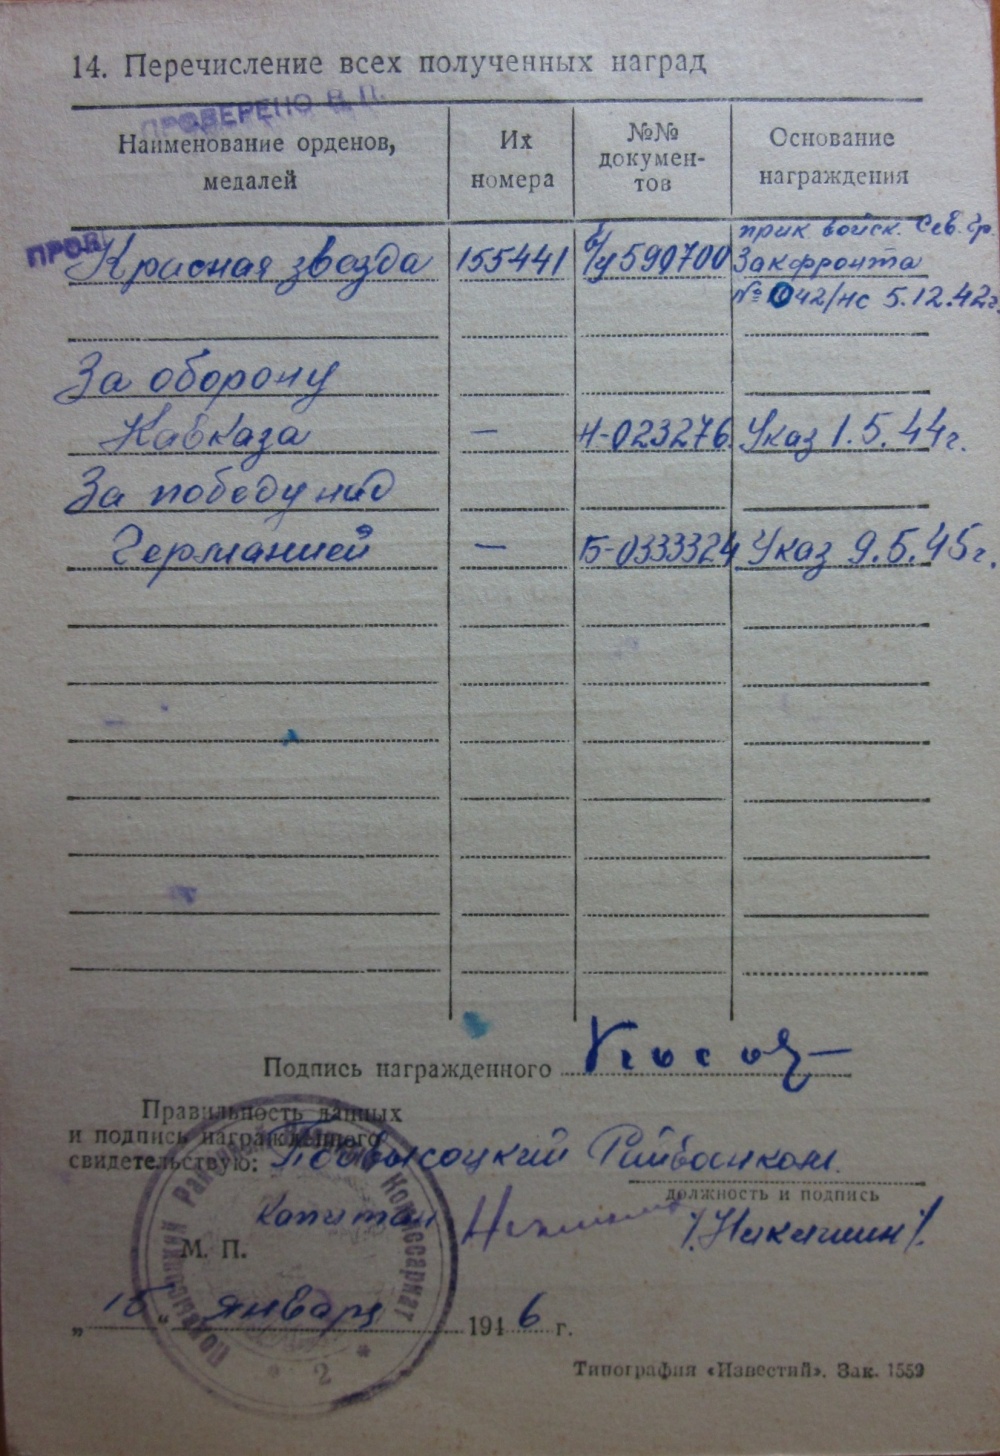 14. Перечисление всех полученных наград
ПРОВЕРЕНО В. П.
Наименование орденов, медалей
Их номера
№№ докумен-тов
Основание награждения
ПРОВ
Красная звезда 155441 б/у 590700 прик войск. Сев. Гр.
Закфронта
№ 042/нс 5.12.42г.
За оборону
Кавказа — Н-023276. Указ 1.5.44г.
За победу над
Германией — Б-0333324 Указ 9.5.45г.
Подпись награжденного
Правильность данных
и подпись награжденного
свидетельствую: Подвысоцкий Райвоенком.
должность и подпись
Капитан /Никашин/.
М. П.
„15“ января 1946 г.
Подвысоцкий Районный Комиссариат
* 2 *
Типография «Известий». Зак. 1559